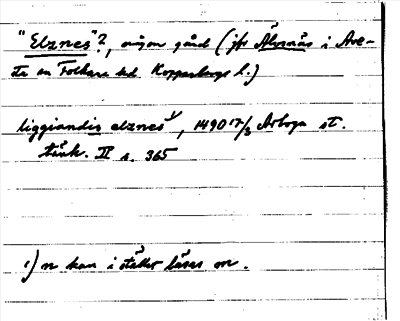 "Elznes"?, någon gård (jfr Älvsnäs i Ave-
sta sn Folkare hd. Kopparbergs l.)
liggiandis elznes¹⁾, 1490 17/3 Arboga st.
tänk. II s. 365
1) n kan i stället läsas m.